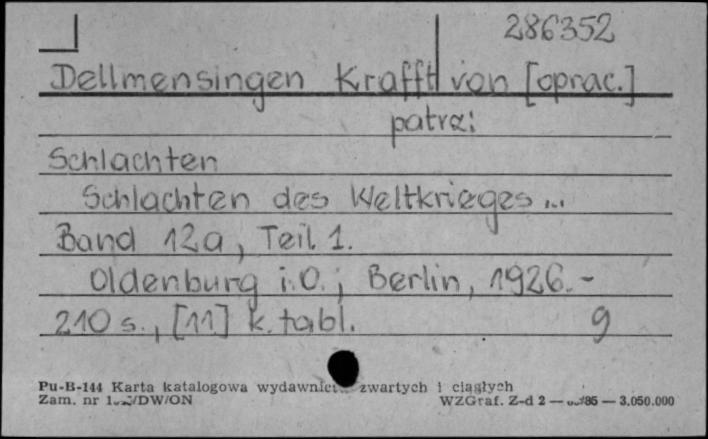 286352
Dellmensingen Krafft von [oprac.]
patrz:
Schlachten
Schlachten des Weltkrieges ...
Band 12a, Teil 1.
Oldenburg i.O.; Berlin, 1926.-
210 s., [11] k. tabl. 9
Pu-B-144 Karta katalogowa zwartych i ciągłych
Zam. nr WZGraf. Z-d 2 — 3.050.000